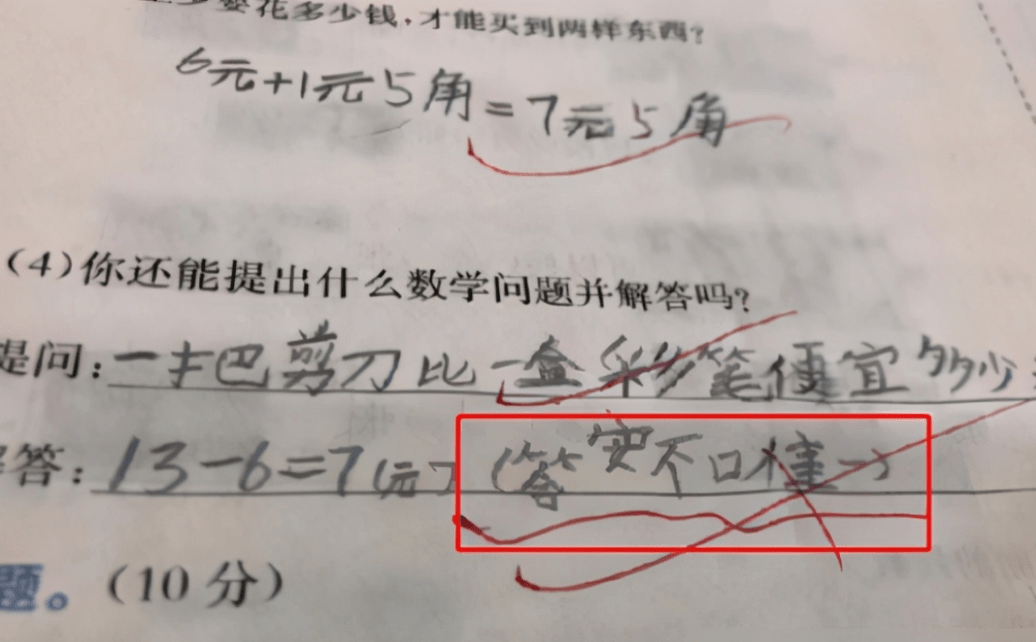 要花多少钱，才能买到两样东西？
6元+1元5角=7元5角
(4)你还能提出什么数学问题并解答吗？
提问：一把剪刀比一盒彩笔便宜多少
答：13-6=7(元) (答
题。(10分)